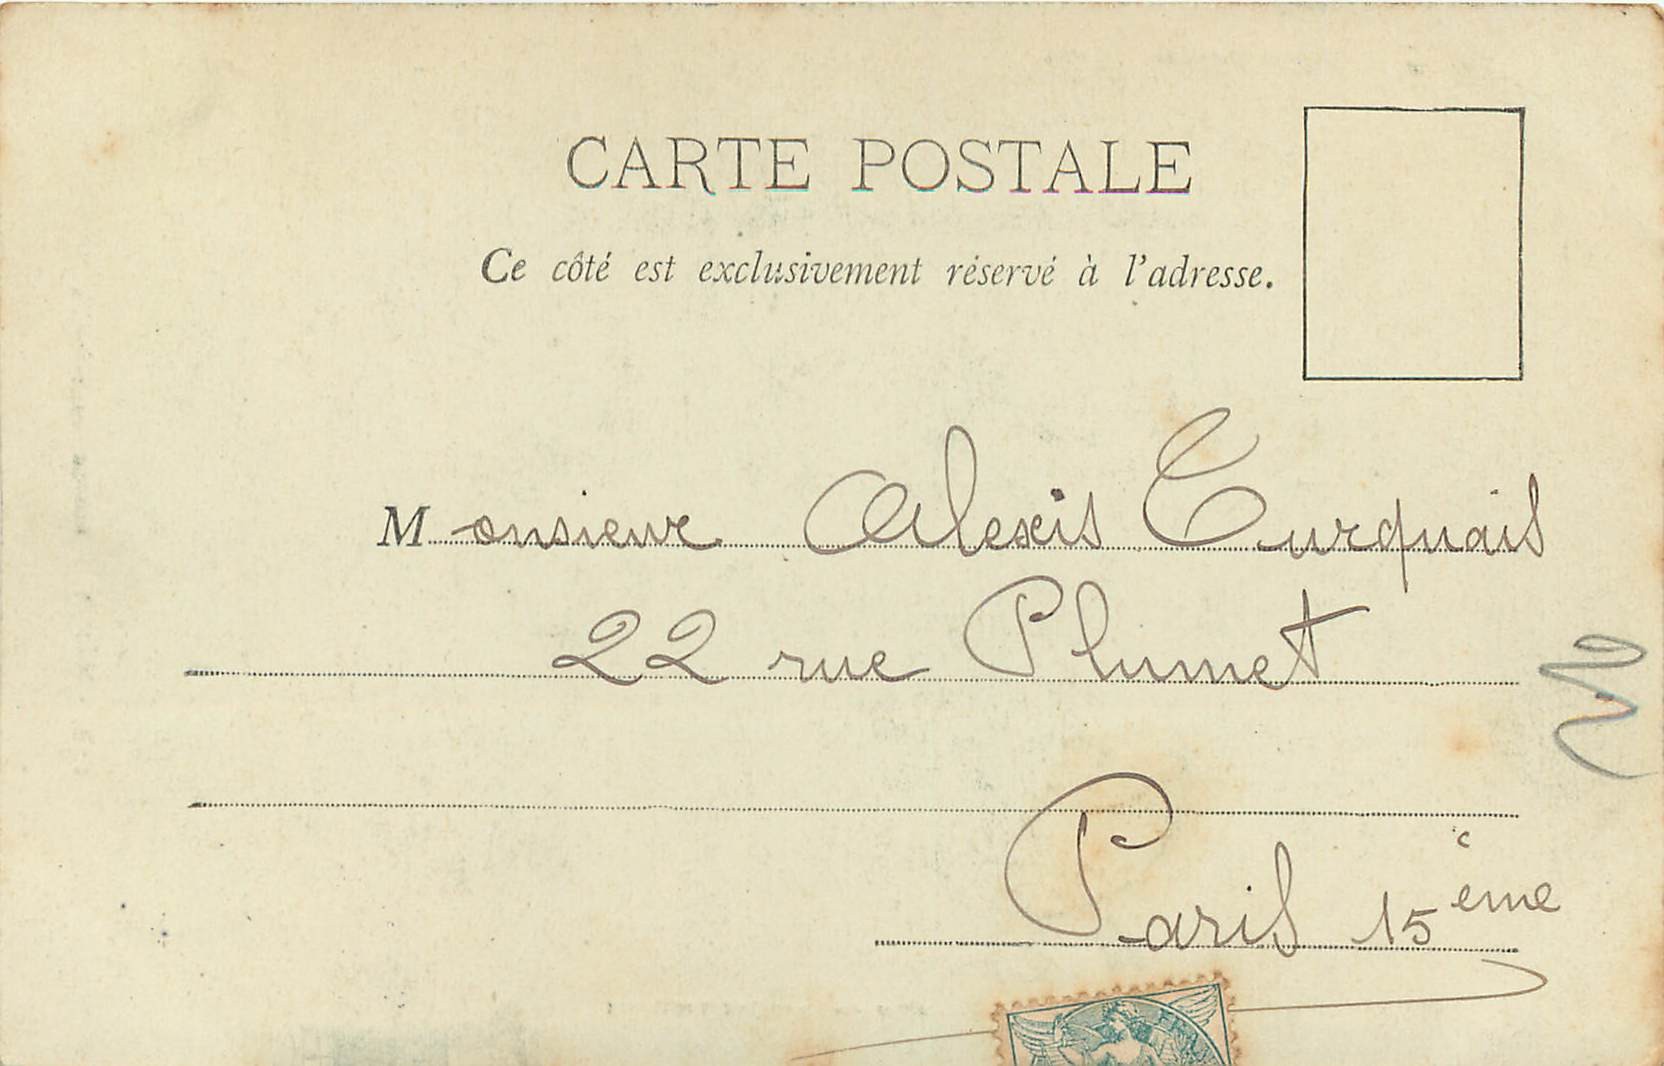 CARTE POSTALE
Ce côté est exclusivement réservé à l'adresse.
Monsieur Alexis Turquais
22 rue Plumet
Paris 15 ème